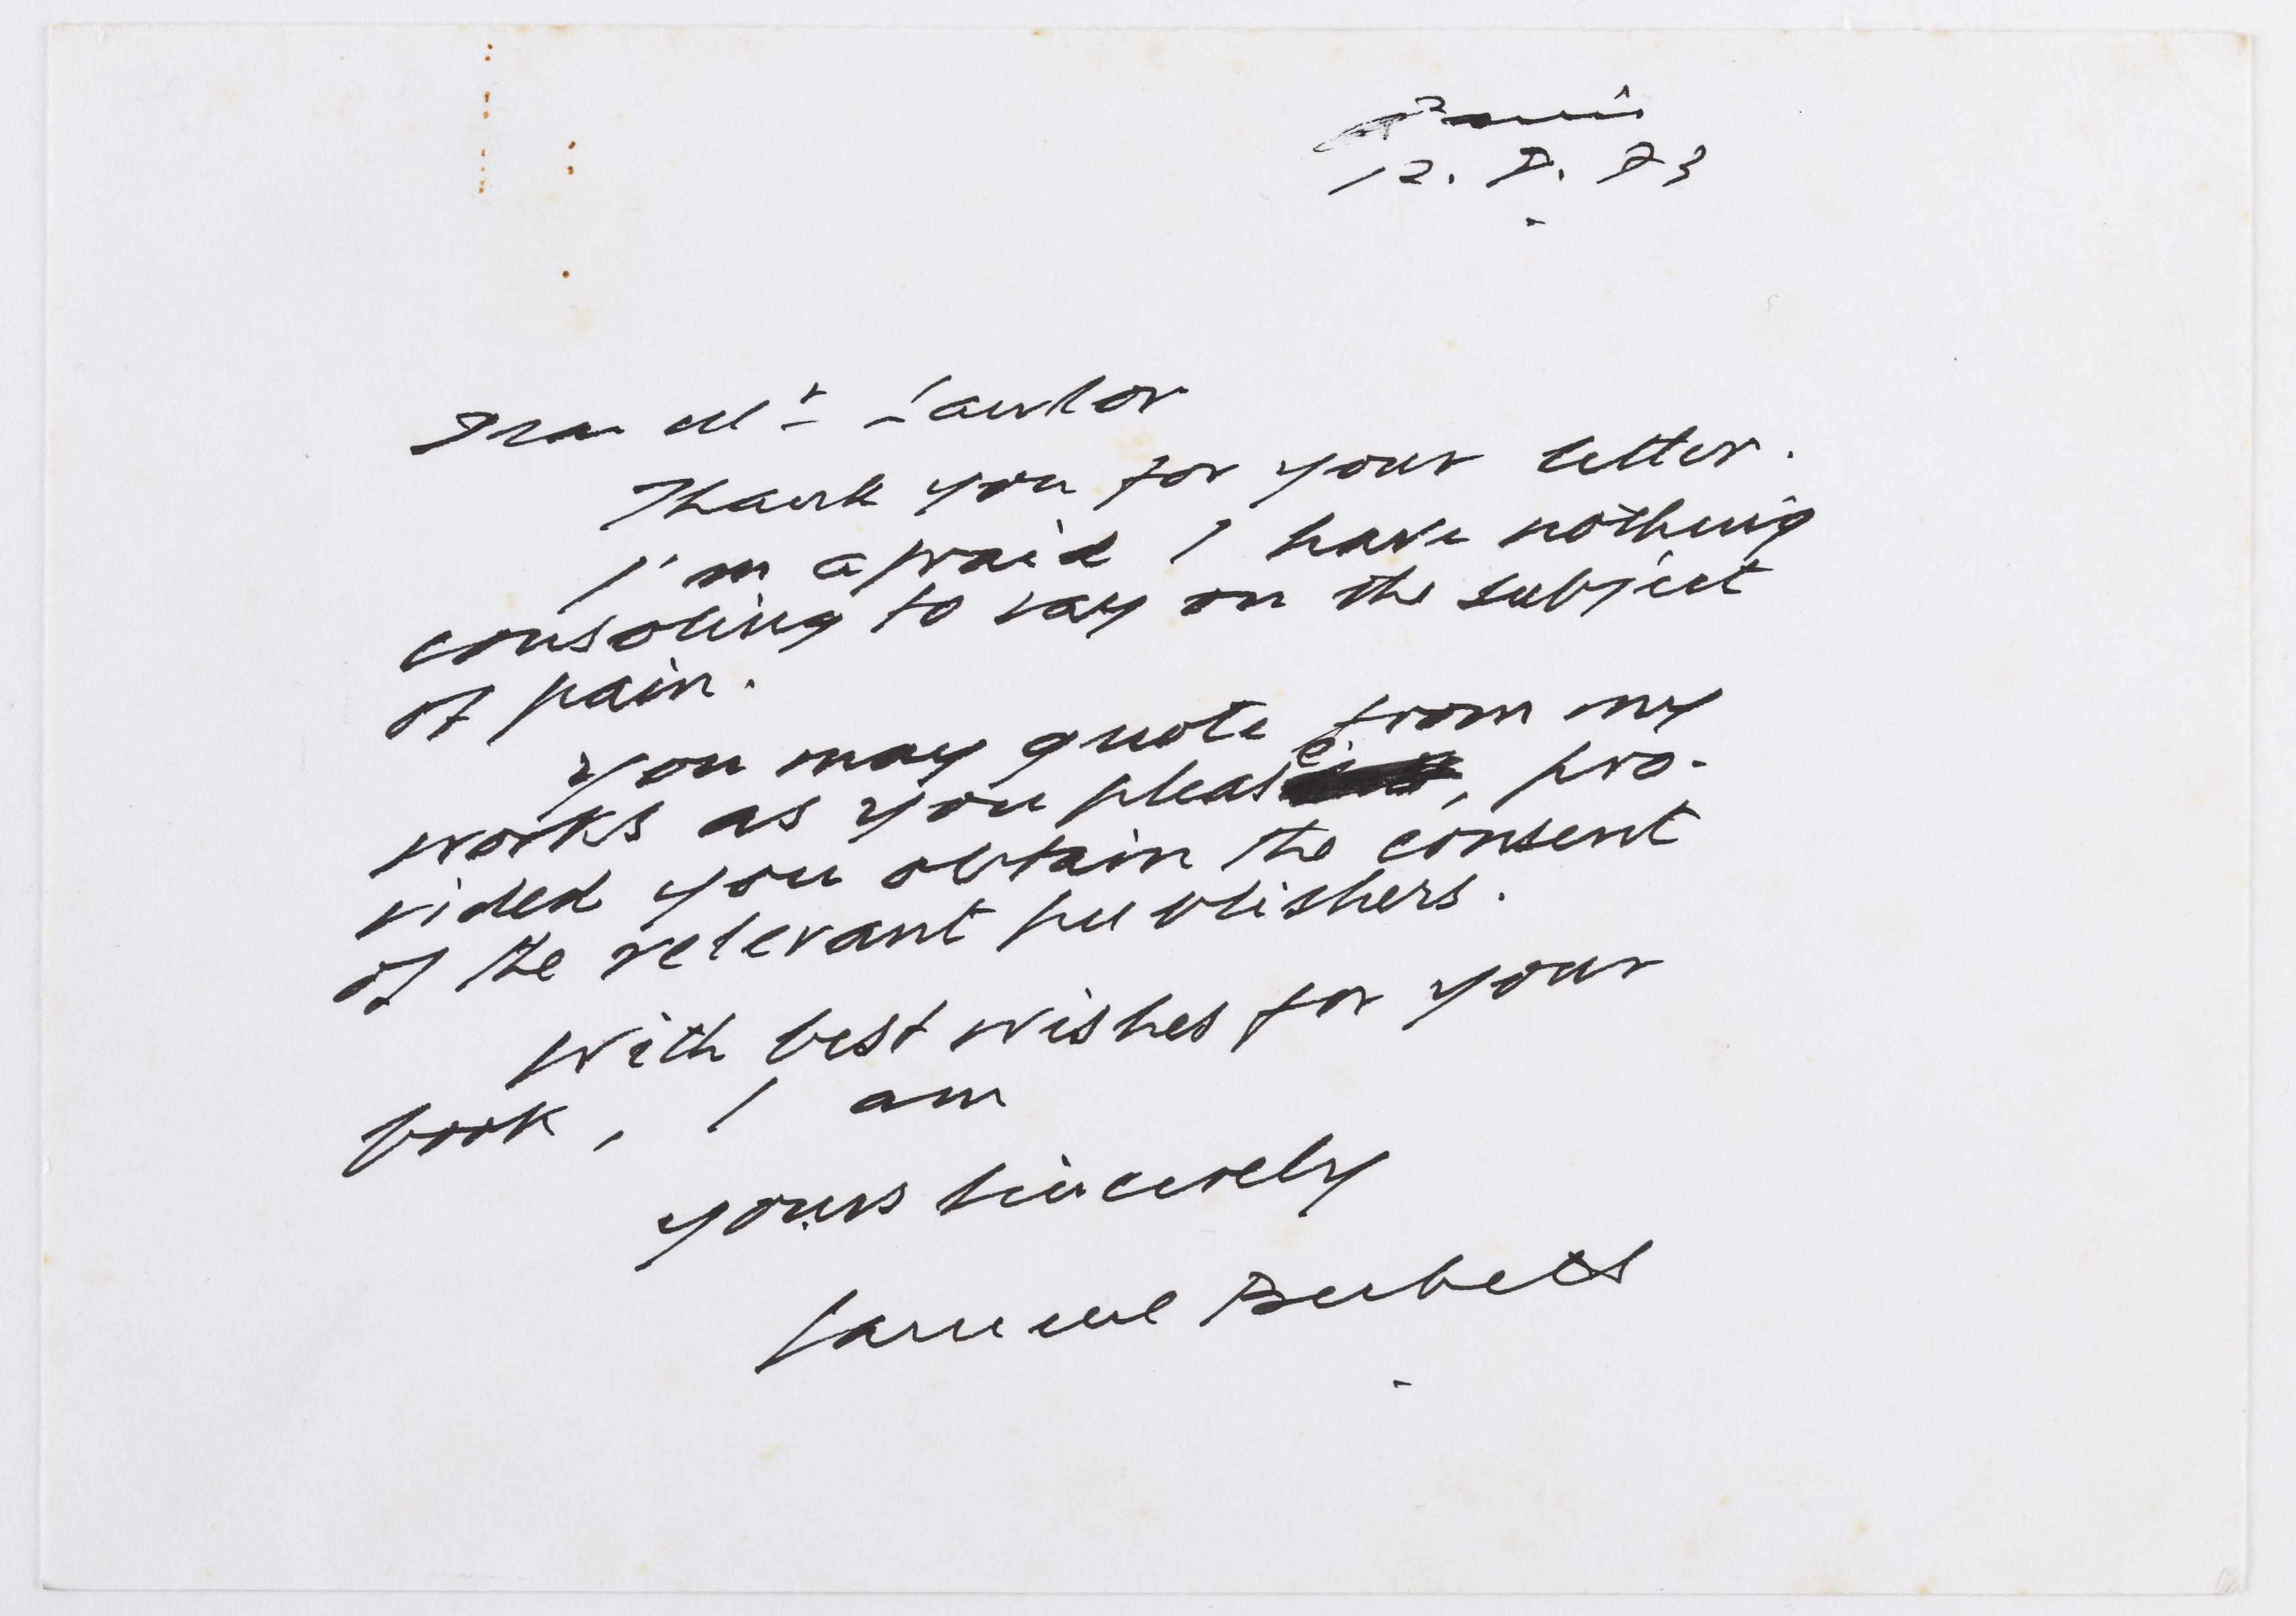 Paris
12.
Dear Mr
Thank you for your letter.
I'm afraid I have nothing
consoling to say on the subject
of pain.
You may quote from my
works as you please, pro-
vided you obtain the consent
of the relevant publishers.
With best wishes for your
book, I am
yours sincerely
Samuel Beckett